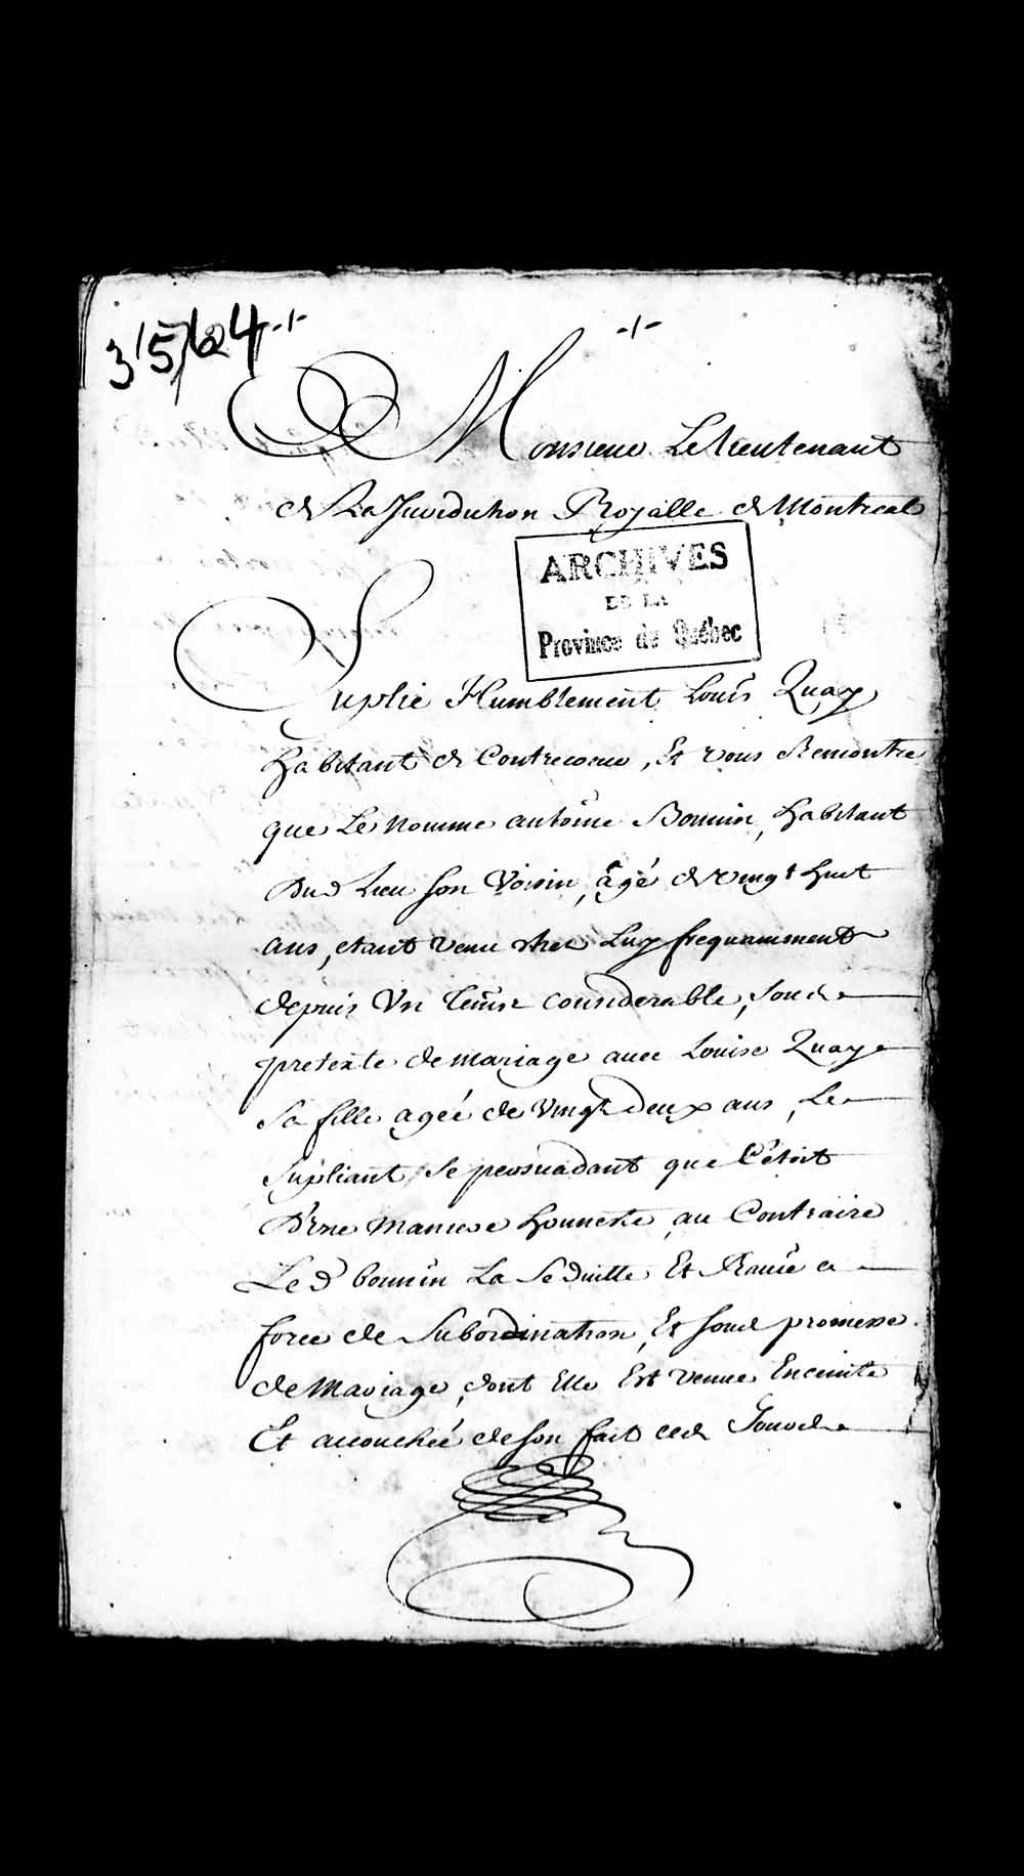 3/5/24 -/-
-/-
Monsieur Le lieutenant
de La Juridiction Royalle de Montreal
ARCHIVES
DE LA
Province de Québec
Suplie Humblement Louis Quay
habitant de Contrecoeur, Et vous Remontre
que Le nomme antoine Bonnin, habitant
Dud Lieu son Voisin, âgé de vingt huit
ans, etant venu chez Luy frequamment
depuis Un tems considerable, sous
pretexte de mariage avec Louise Quay
Sa fille ageé de vingt deux ans, Le
Supliant Se persuadant que C'étoit
D'une maniere honneste, au Contraire
Led bonnin La Seduitte Et Ravie a
force de Subordination, Et sous promesse
de Mariage, dont Elle Est venue Enceinte
Et acouchéé de son fait ces Jours